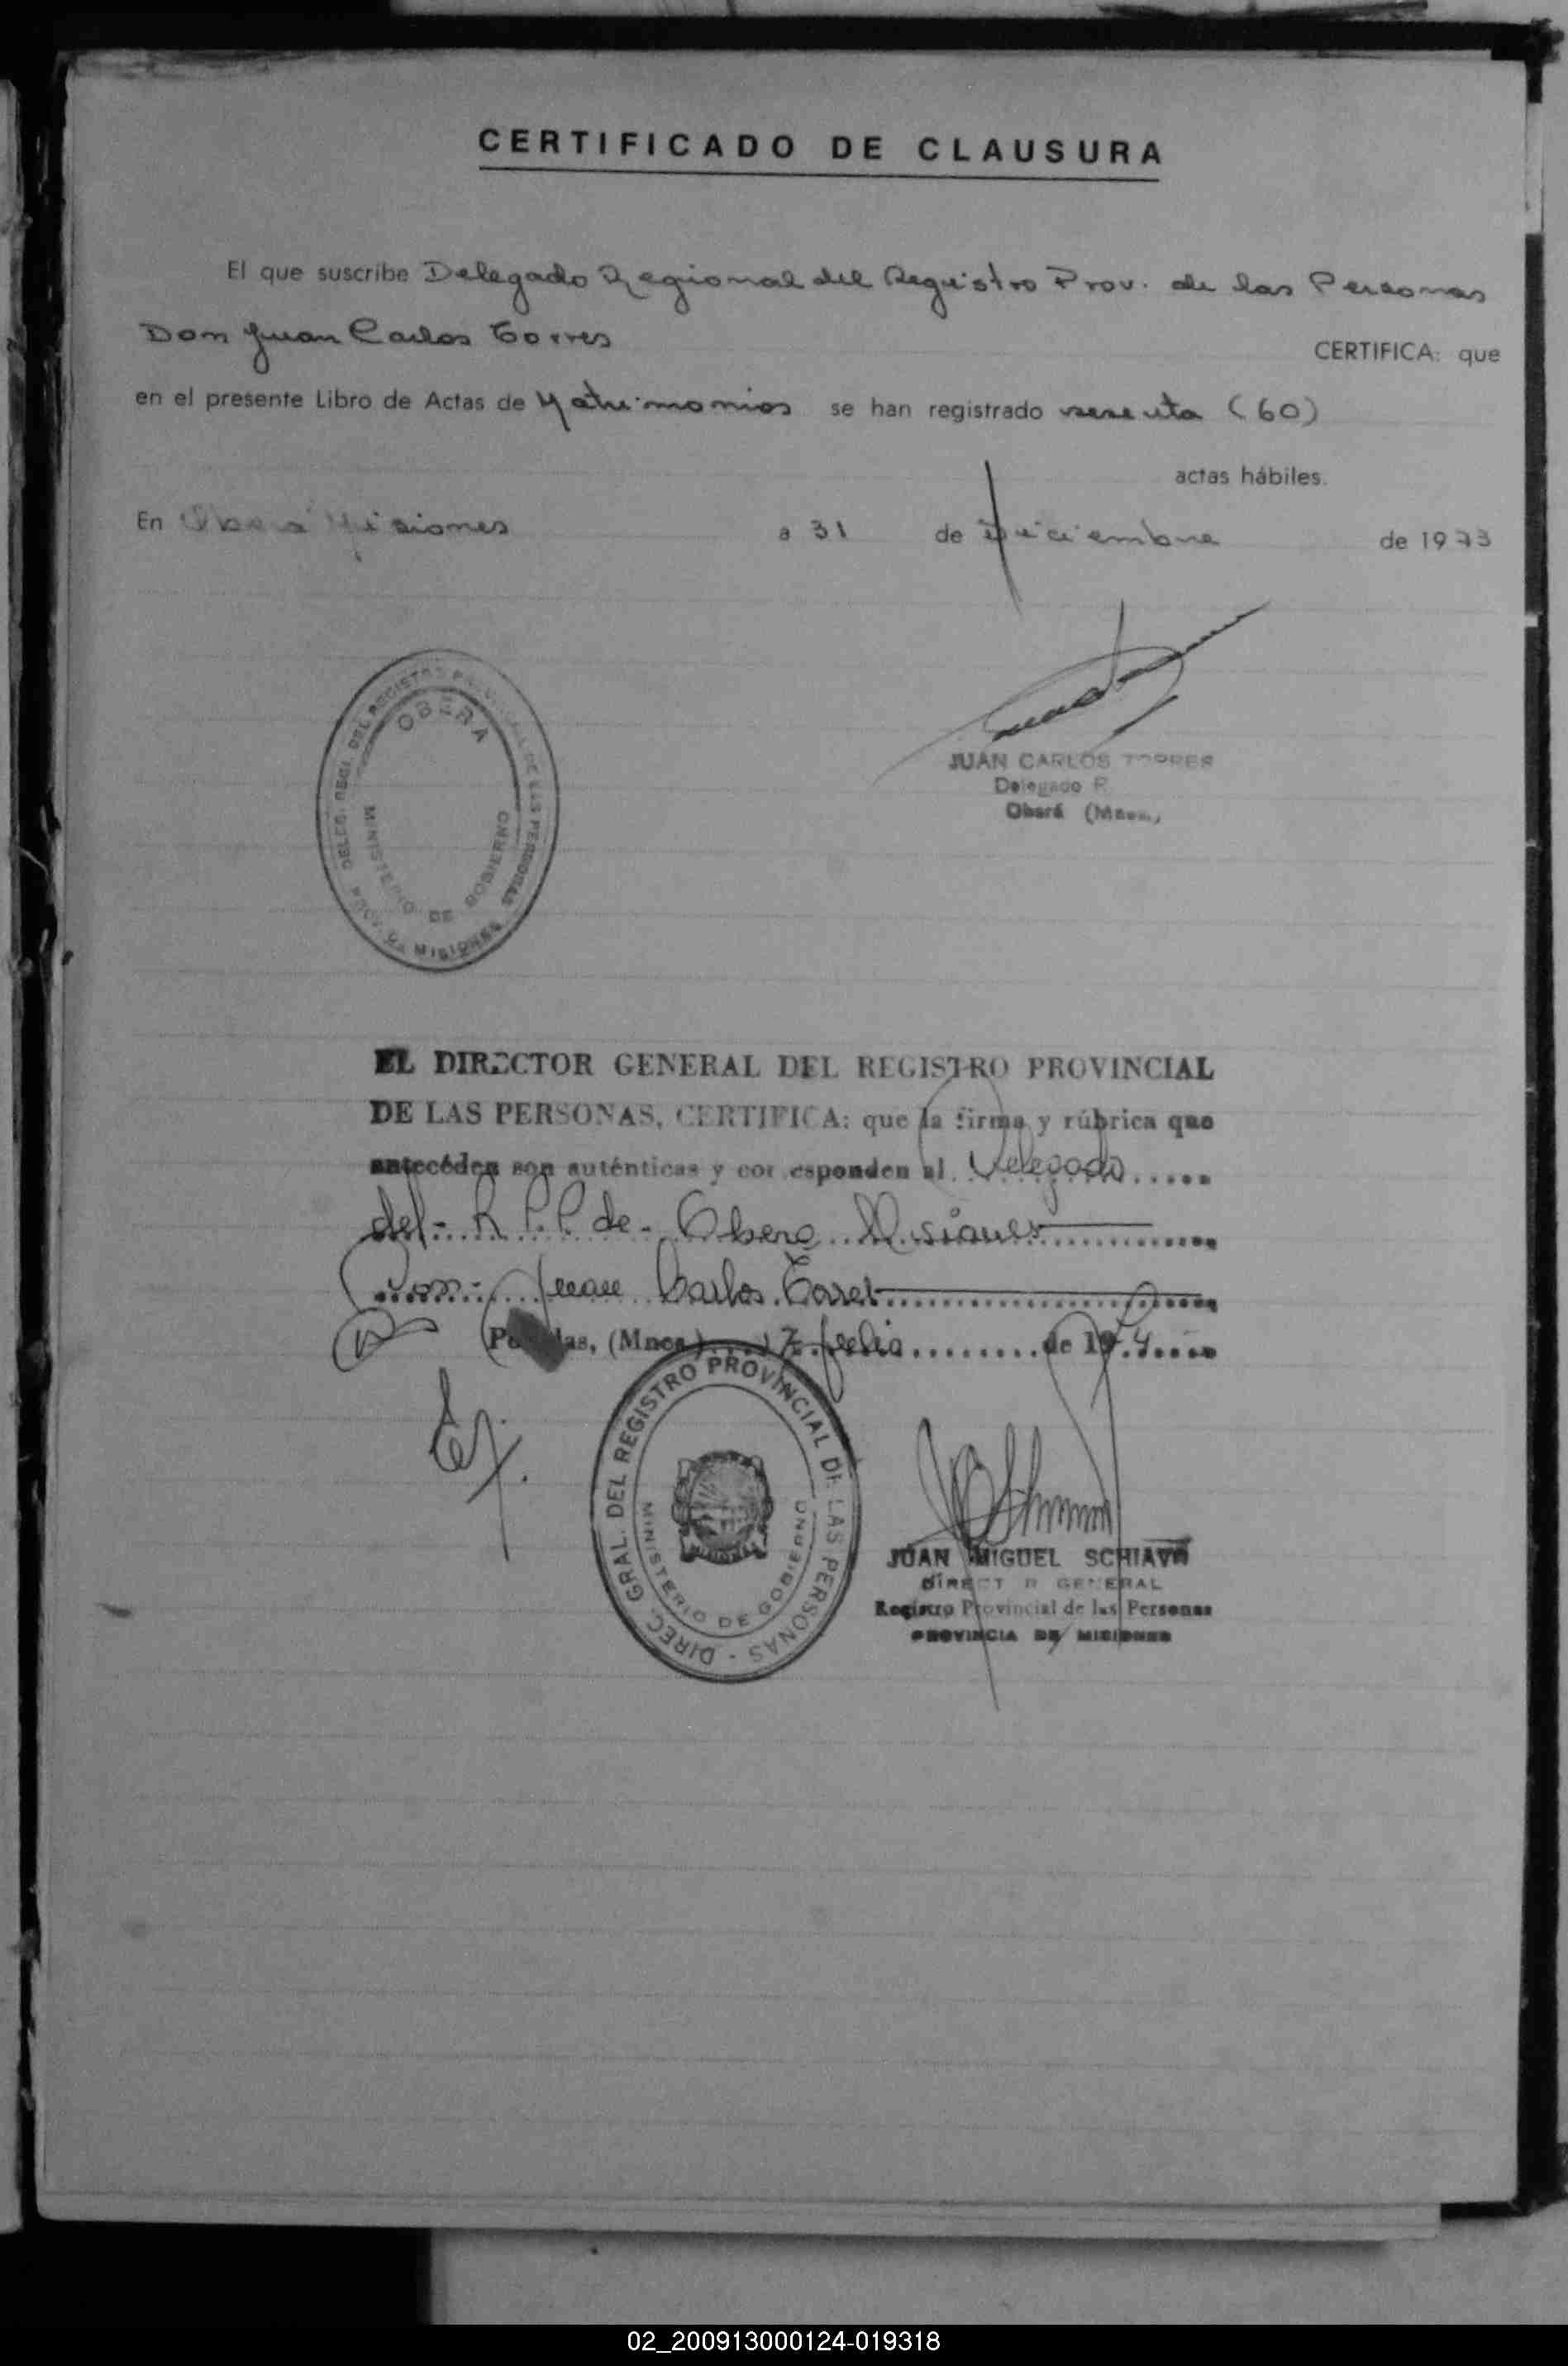 CERTIFICADO DE CLAUSURA
El que suscribe Delegado Regional del Registro Prov. de las Personas
Don Juan Carlos Torres CERTIFICA: que
en el presente Libro de Actas de Matrimonios se han registrado sesenta (60)
actas hábiles.
En Oberá Misiones a 31 de Diciembre de 1973
DELEG. REGI. DEL REGISTRO PROVINCIAL DE LAS PERSONAS
OBERA
MINISTERIO DE GOBIERNO
PROV. DE MISIONES
JUAN CARLOS TORRES
Delegado R
Oberá (Mnes.)
EL DIRECTOR GENERAL DEL REGISTRO PROVINCIAL
DE LAS PERSONAS, CERTIFICA: que la firma y rúbrica que
anteceden son auténticas y corresponden al Delegado
del R.P.P. de Obera Misiones
Don Juan Carlos Torres
Posadas, (Mnes.) 17 Julio de 1974
DIREC. GRAL. DEL REGISTRO PROVINCIAL DE LAS PERSONAS -
MINISTERIO DE GOBIERNO
JUAN MIGUEL SCHIAVO
DIRECTOR GENERAL
Registro Provincial de las Personas
PROVINCIA DE MISIONES
02_200913000124-019318